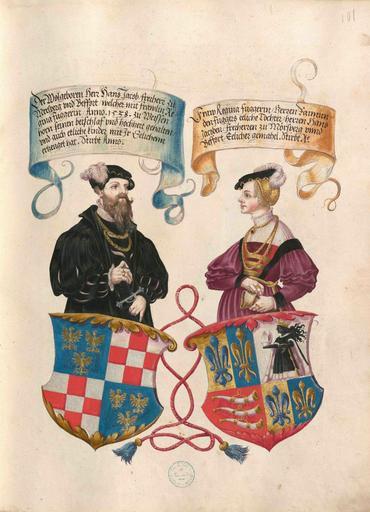 101
Der Wolgeboren Herr Hans Jacob freiherr zu
Mörsberg vnd Beffort, welcher mit frewlin Re
gina fuggerin Anno. 1538. zu Weissen
horn seinen beischlaff vnd hochzeit gehalten
vnd auch etliche kinder mit Ir Eelichenn
ertzeuget hat. Sturbe Anno.
Fraw Regina fuggerin, Herren Raimun
den fuggers eeliche Tochter, herren Hans
Jacoben, freiherren zu Mörsberg vnnd
Beffort, Eelicher gemahel, Sturbe Ao